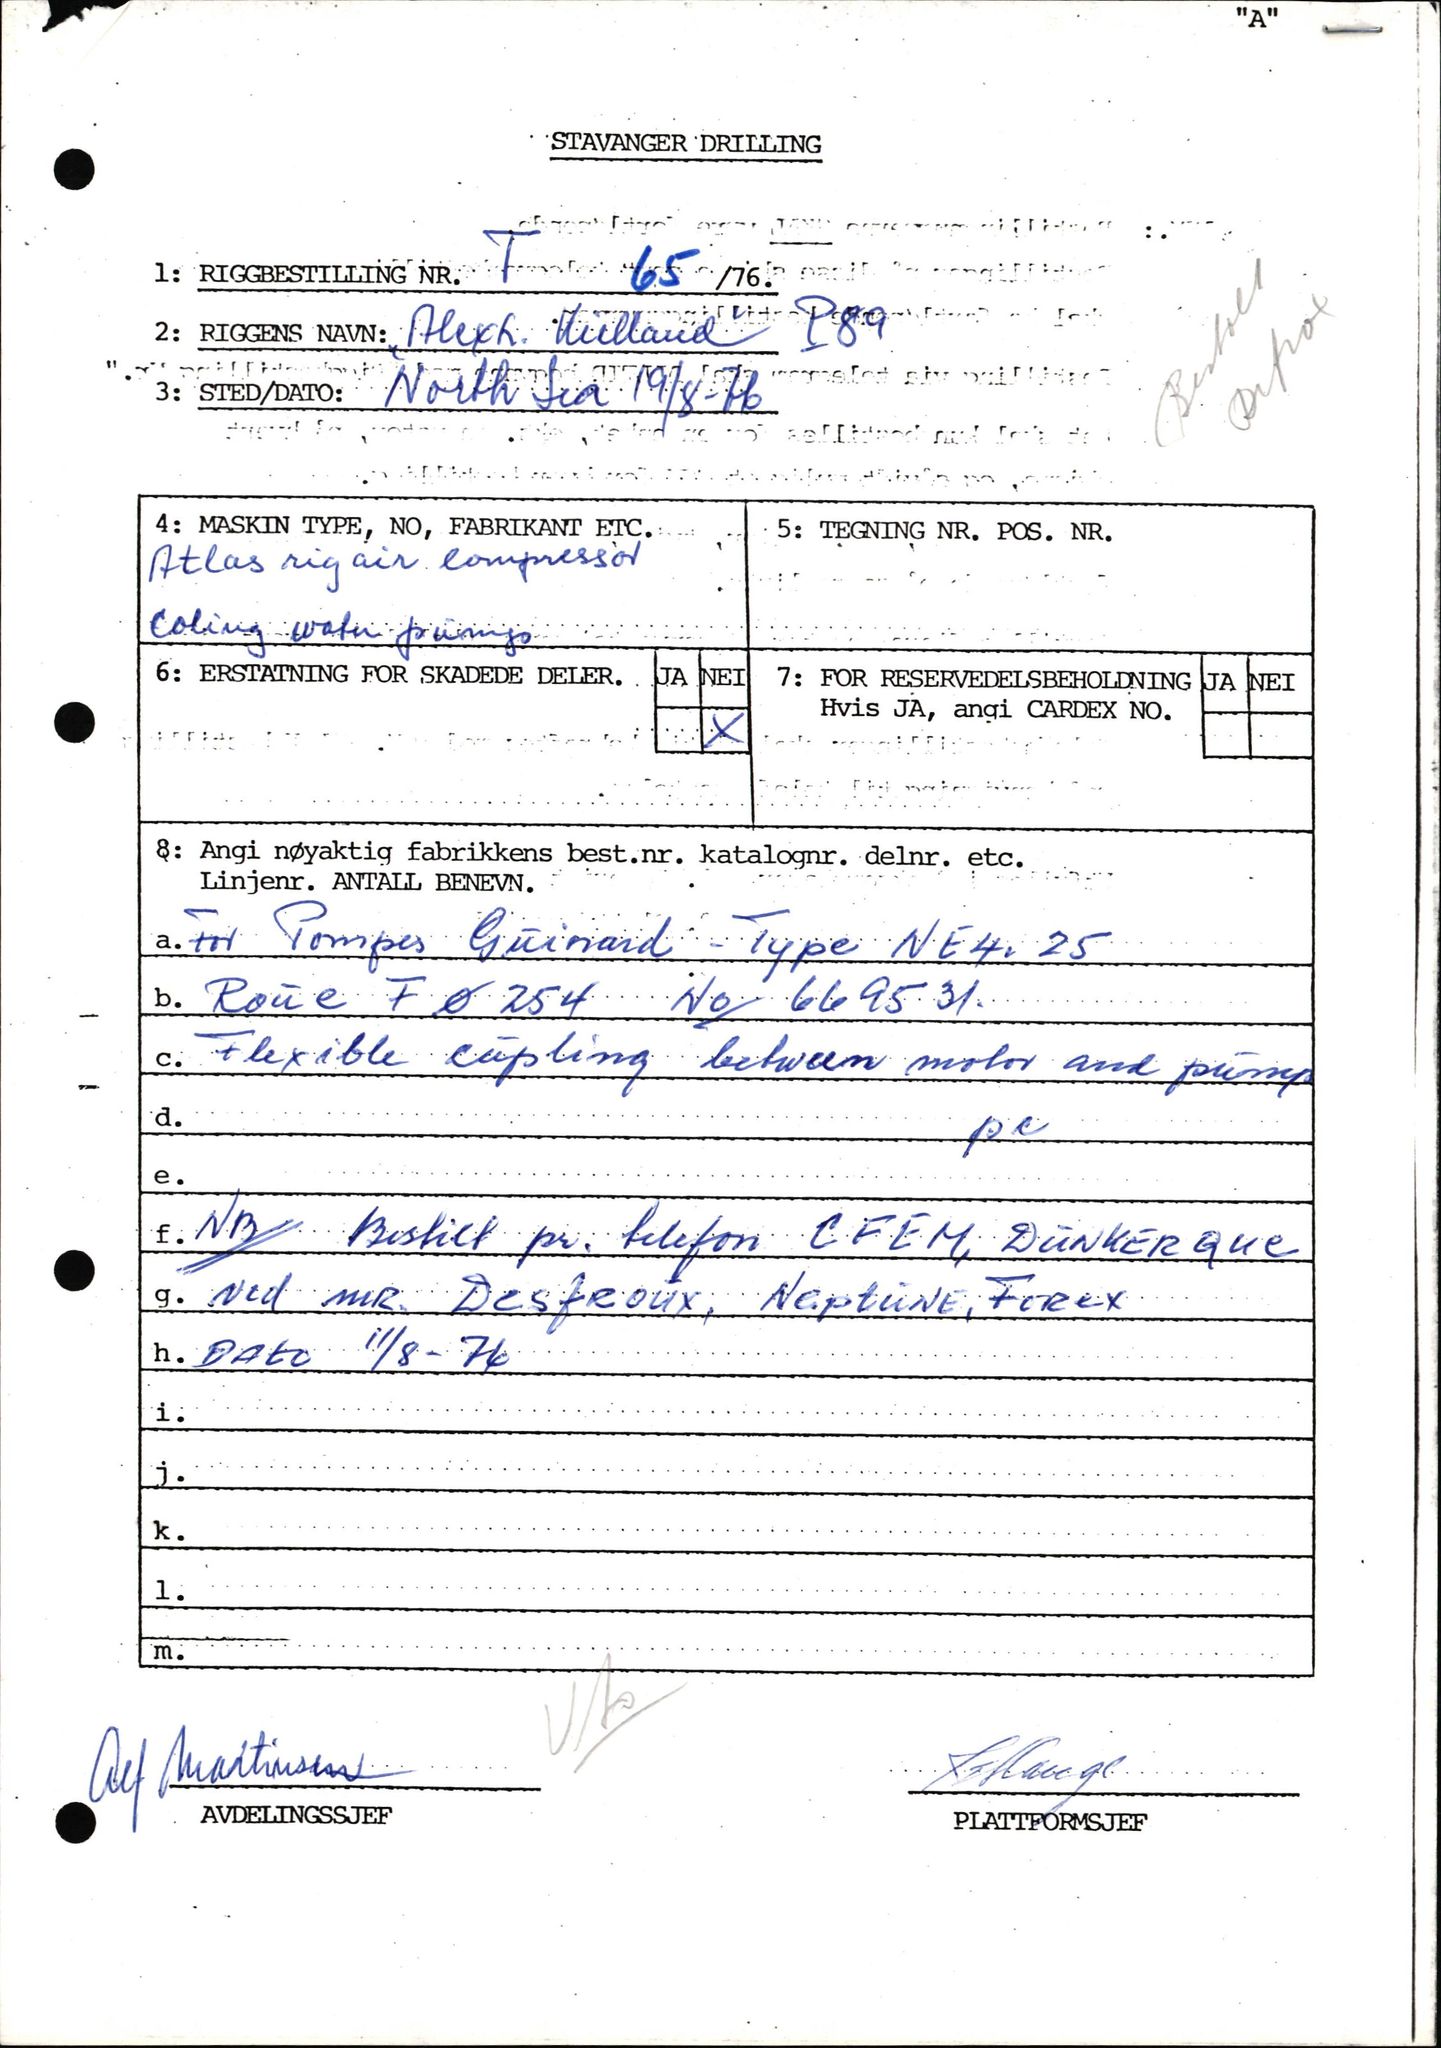 "A"
STAVANGER DRILLING
1: RIGGBESTILLING NR. T 65 /76.
2: RIGGENS NAVN: "Alexh. Kielland" P89
3: STED/DATO: North Sea 19/8-76
Bestilt
4: MASKIN TYPE, NO, FABRIKANT ETC.
Atlas rig air compressor
Coling water pumps
5: TEGNING NR. POS. NR.
6: ERSTATNING FOR SKADEDE DELER. JA NEI
X
7: FOR RESERVEDELSBEHOLDNING JA NEI
Hvis JA, angi CARDEX NO.
8: Angi nøyaktig fabrikkens best.nr. katalognr. delnr. etc.
Linjenr. ANTALL BENEVN.
a. For Pompes Guinard - Type NE4. 25
b. Roue F ø 254 No 669531.
c. Flexible cupling between motor and pump
d. pc
e.
f. NB Bestilt pr. telefon CFEM, DUNKERQUE
g. ved mR. Desfroux, Neptune, Forex
h. Dato 11/8-76
i.
j.
k.
l.
m.
Alf Martinsen
AVDELINGSSJEF
PLATTFORMSJEF